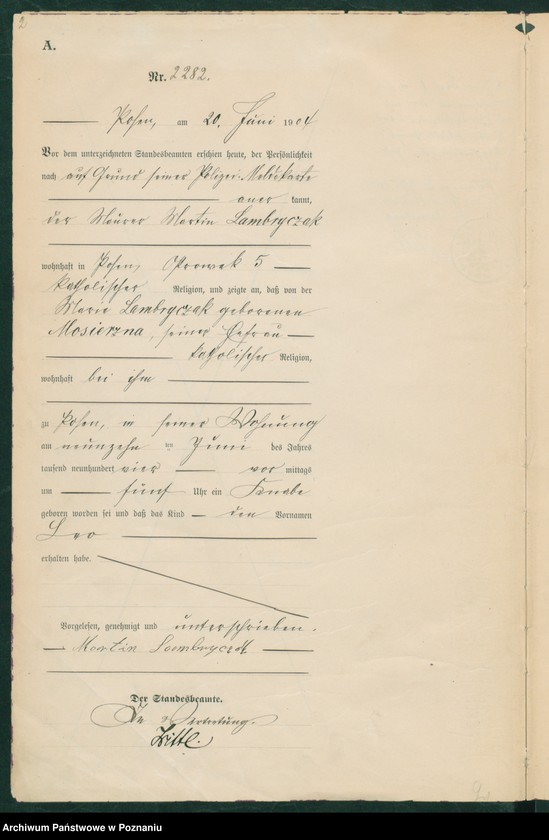 2
A.
Nr. 2282.
Posen, am 20. Juni 1904
Vor dem unterzeichneten Standesbeamten erschien heute, der Persönlichkeit
nach auf Grund seiner Polizei-Meldekarte
aner kannt,
der Maurer Martin Lambryczak
wohnhaft in Posen, 5
katholischer Religion, und zeigte an, daß von der
Marie Lambryczak geborenen
Mosierzna, seiner Ehefrau
katholischer Religion,
wohnhaft bei ihm
zu Posen, in seiner Wohnung
am neunzehn ten Juni des Jahres
tausend neunhundert vier vor mittags
um fünf Uhr ein Knabe
geboren worden sei und daß das Kind den Vornamen
Leo
erhalten habe.
Vorgelesen, genehmigt und unterschrieben.
Martin
Der Standesbeamte.
In Vertretung.
2
Archiwum Państwowe w Poznaniu